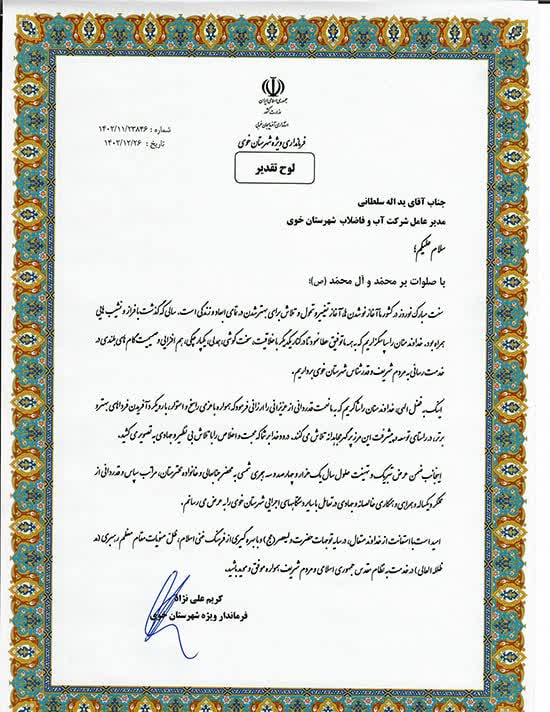 جمهوری اسلامی ایران
وزارت کشور
استانداری آذربایجان غربی
فرمانداری ویژه شهرستان خوی
شماره : ۱۴۰۲/۱۱/۲۳۸۴۶
تاریخ : ۱۴۰۲/۱۲/۲۶
لوح تقدیر
جناب آقای ید اله سلطانی
مدیر عامل شرکت آب و فاضلاب شهرستان خوی
سلام علیکم؛
با صلوات بر محمّد و آل محمّد (ص)؛
سنت مبارک نوروز در کشور ما آغاز نو شدن ها، آغاز تغییر و تحول و تلاش برای بهتر شدن در تمامی ابعاد و زندگی است. سالی که گذشت با فراز و نشیب هایی
همراه بود. خداوند منان را سپاسگزاریم که به همه ما توفیق عطا نمود تا در کنار یکدیگر با خلاقیت، سخت کوشی، همدلی، یکپارچگی، هم افزایی و صمیمیت گام های بلندی در
خدمت رسانی به مردم شریف و قدرشناس شهرستان خوی برداریم.
اینک به فضل الهی، خداوند منان را شاکریم که به ما نعمت قدردانی از عزیزانی را ارزانی فرمود که همواره با عزمی راسخ و استوار، با رویکرد آفریدن فرداهای بهتر و
برتر، در راستای توسعه و پیشرفت این مرز پرگهر مجاهدانه تلاش می کنند. درود خدا بر شما که محبت و اخلاص را با تلاش بی نظیر و جهادی به تصویر می کشید.
اینجانب ضمن عرض تبریک و تهنیت حلول سال یک هزار و چهارصد و سه هجری شمسی به محضر جنابعالی و خانواده محترمتان، مراتب سپاس و قدردانی از
تفکر و یکساله و همراهی و همکاری خالصانه و جهادی در تعامل با سایر دستگاههای اجرایی شهرستان خوی را به عرض می رسانم.
امید است با استعانت از خداوند متعال، در سایه توجهات حضرت ولیعصر (عج) و با بهره گیری از فرهنگ غنی اسلام، تحقق منویات مقام معظم رهبری (مد
ظله العالی) در خدمت به نظام مقدس جمهوری اسلامی و مردم شریف همواره موفق و موید باشید.
کریم علی نژاد
فرماندار ویژه شهرستان خوی